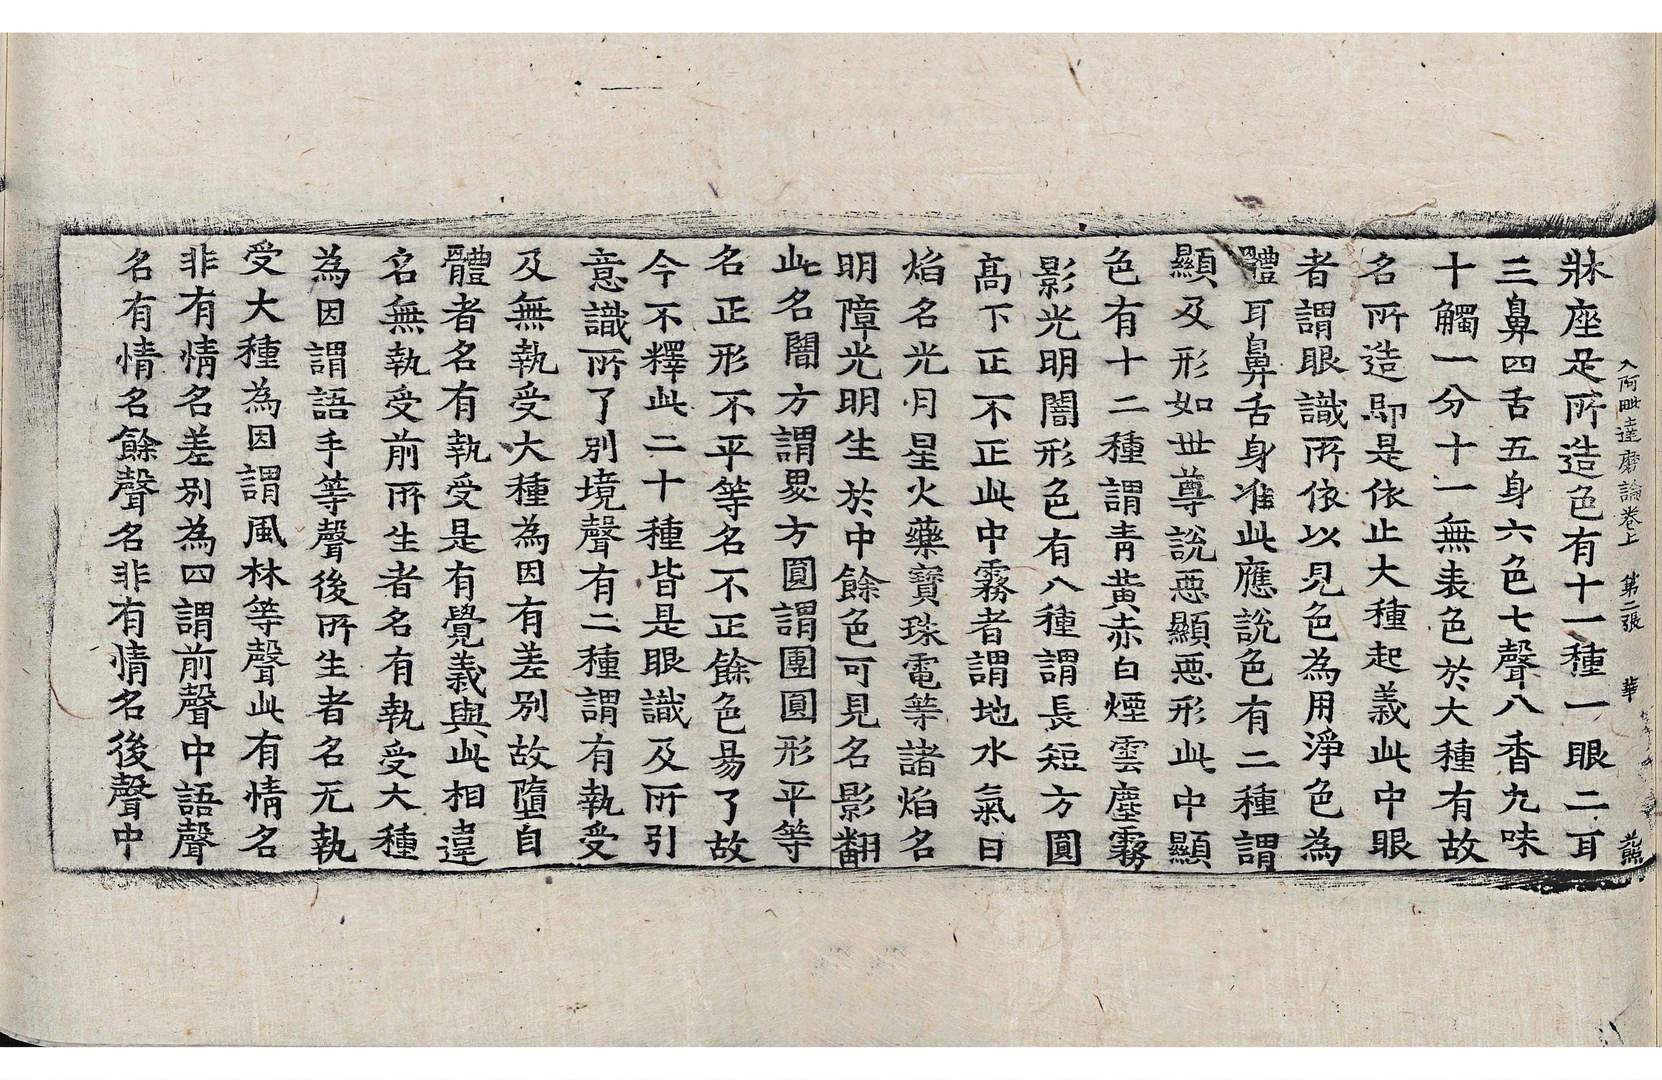 入阿毗達磨論卷上 第二張 華
牀座是所造色有十一種一眼二耳
三鼻四舌五身六色七聲八香九味
十觸一分十一無表色於大種有故
名所造即是依止大種起義此中眼
者謂眼識所依以見色為用淨色為
體耳鼻舌身准此應說色有二種謂
顯及形如世尊說惡顯惡形此中顯
色有十二種謂青黃赤白煙雲塵霧
影光明闇形色有八種謂長短方圓
高下正不正此中霧者謂地水氣日
焰名光月星火藥寶珠電等諸焰名
明障光明生於中餘色可見名影翻
此名闇方謂畟方圓謂團圓形平等
名正形不平等名不正餘色易了故
今不釋此二十種皆是眼識及所引
意識所了別境聲有二種謂有執受
及無執受大種為因有差別故墮自
體者名有執受是有覺義與此相違
名無執受前所生者名有執受大種
為因謂語手等聲後所生者名无執
受大種為因謂風林等聲此有情名
非有情名差別為四謂前聲中語聲
名有情名餘聲名非有情名後聲中